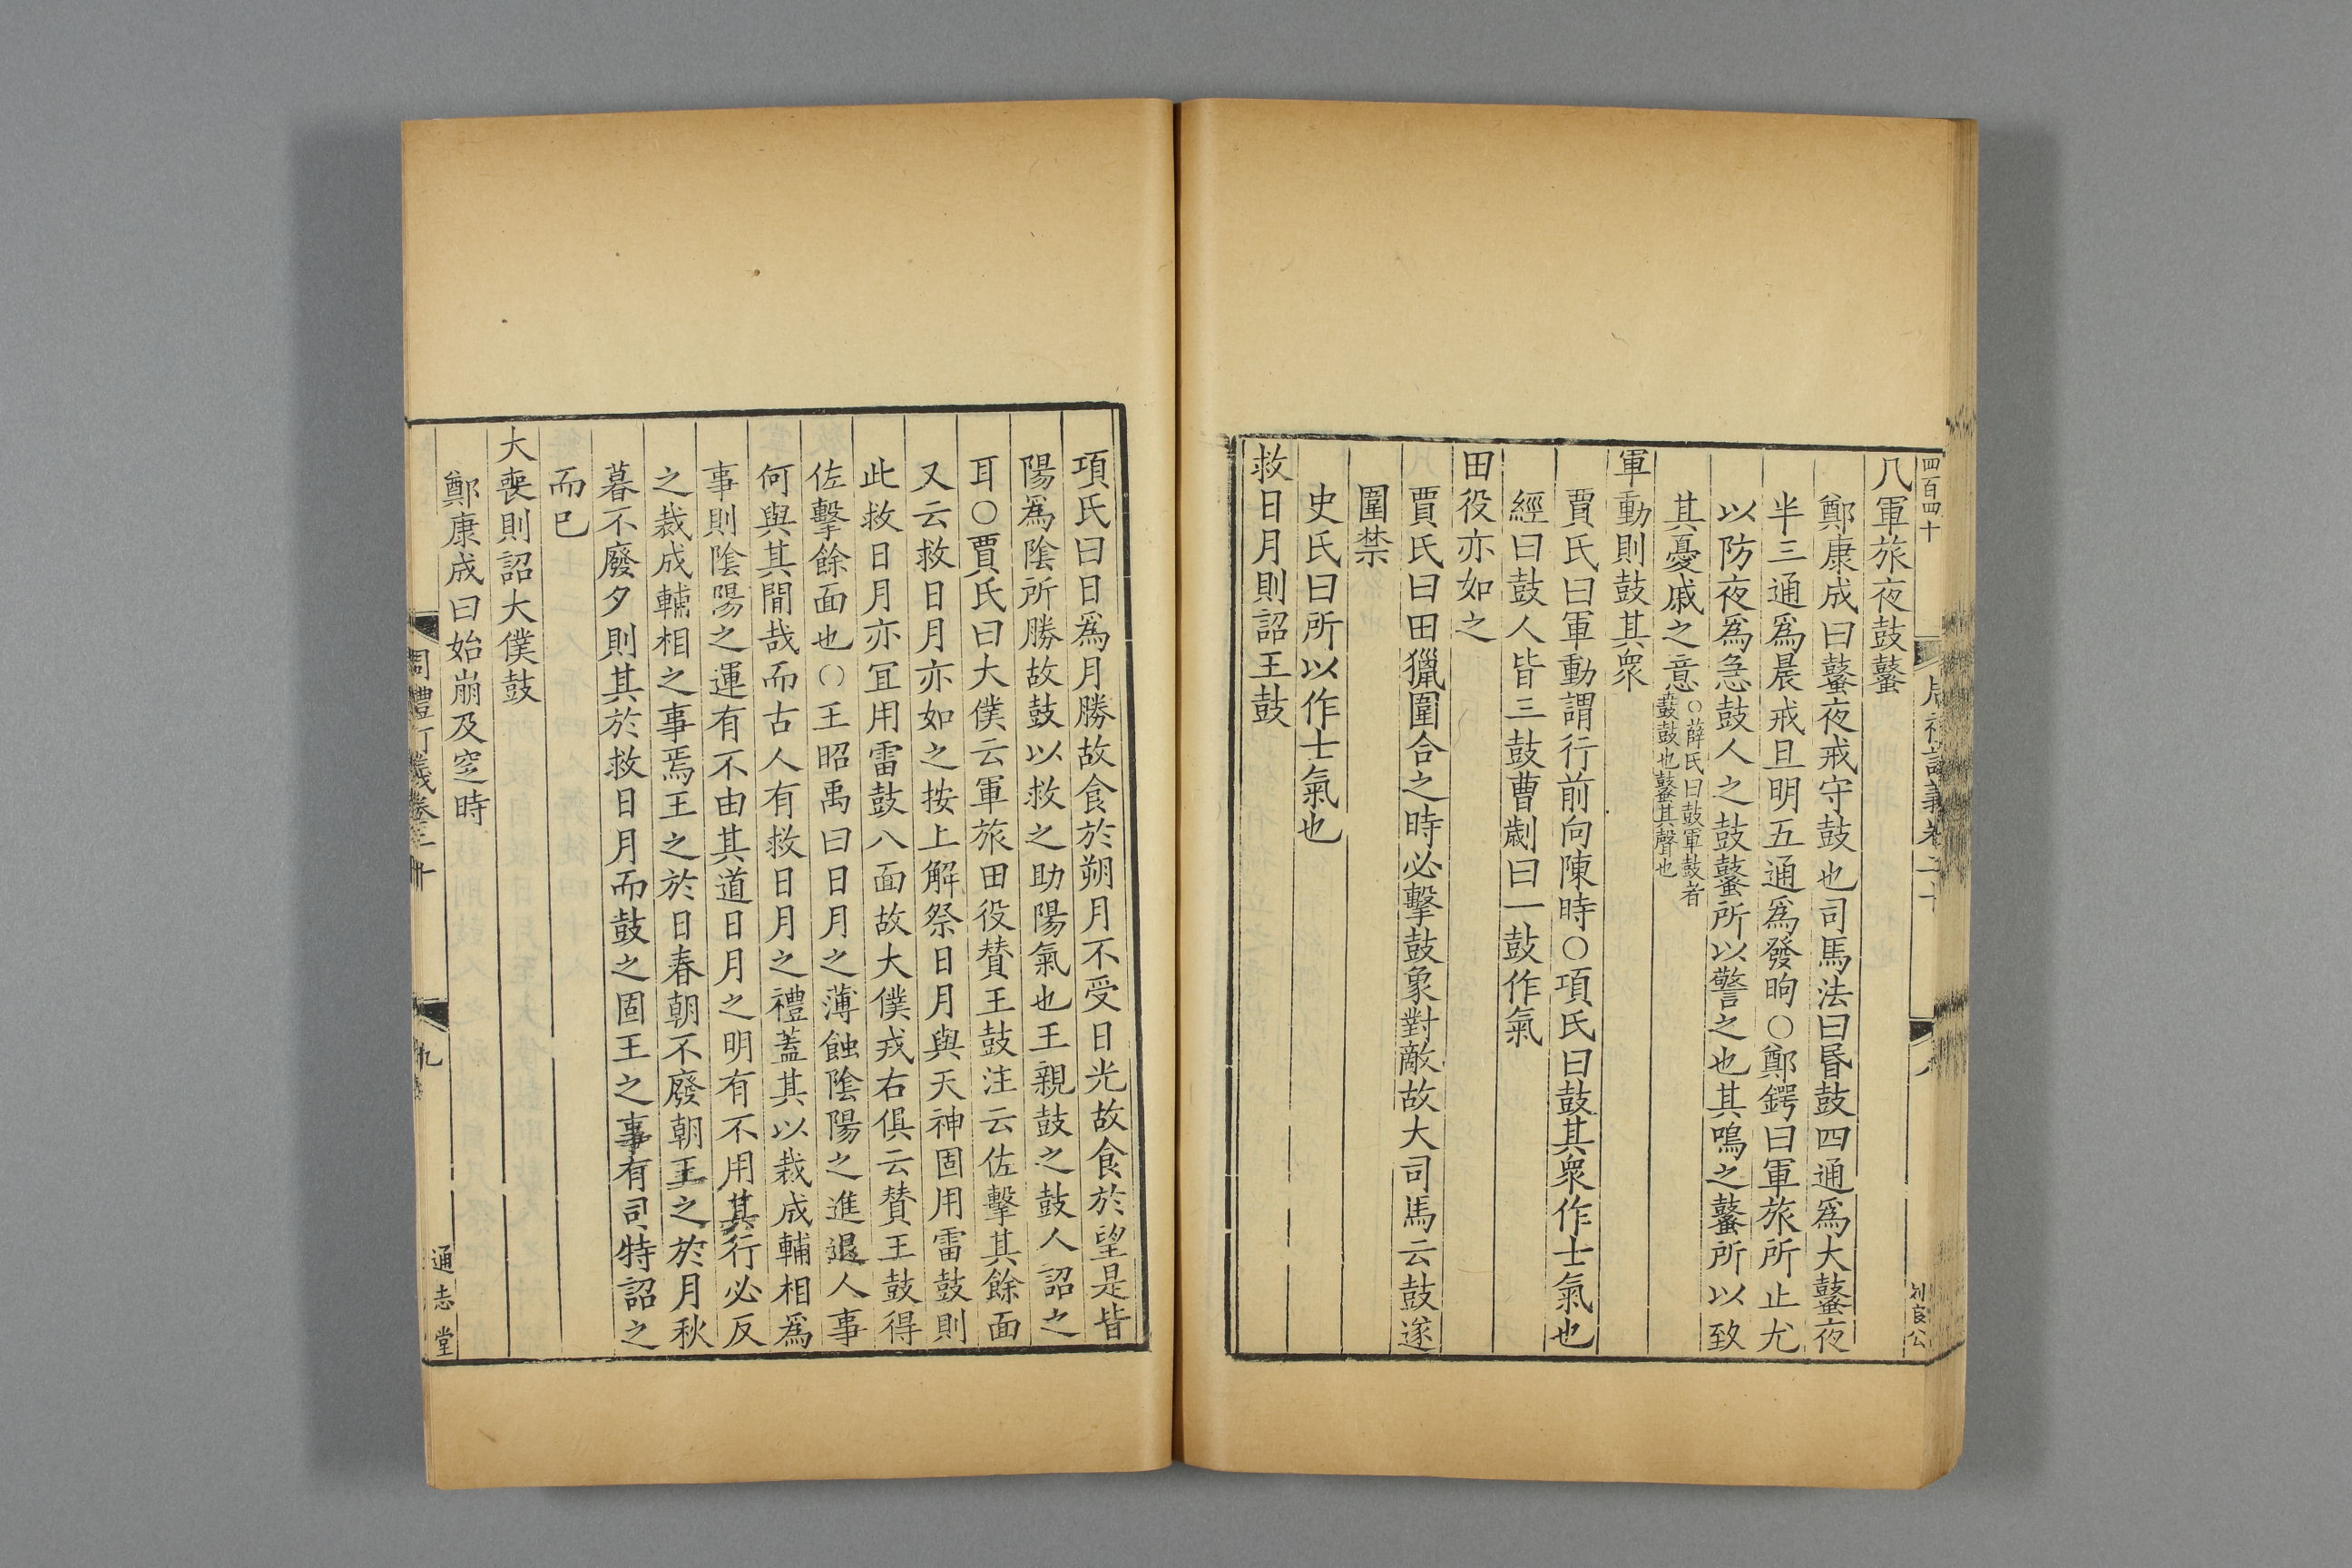 四百四十
凡軍旅夜鼓鼜
鄭康成曰鼜夜戒守鼓也司馬法曰昬鼓四通爲大鼜夜
半三通爲晨戒旦明五通爲發昫○鄭鍔曰軍旅所止尤
以防夜爲急鼓人之鼓鼜所以警之也其鳴之鼜所以致
其憂戚之意○薛氏曰鼓軍鼓者
鼖鼓也鼜其聲也
軍動則鼓其衆
賈氏曰軍動謂行前向陳時○項氏曰鼓其衆作士氣也
經曰鼓人皆三鼓曹劌曰一鼓作氣
田役亦如之
賈氏曰田獵圍合之時必擊鼓象對敵故大司馬云鼓遂
圍禁
史氏曰所以作士氣也
救日月則詔王鼓
項氏曰日爲月勝故食於朔月不受日光故食於望是皆
陽爲陰所勝故鼓以救之助陽氣也王親鼓之鼓人詔之
耳○賈氏曰大僕云軍旅田役賛王鼓注云佐擊其餘面
又云救日月亦如之按上解祭日月與天神固用雷鼓則
此救日月亦冝用雷鼓八面故大僕戎右俱云賛王鼓得
佐擊餘面也○王昭禹曰日月之薄蝕陰陽之進退人事
何與其間哉而古人有救日月之禮蓋其以裁成輔相爲
事則陰陽之運有不由其道日月之明有不用其行必反
之裁成輔相之事焉王之於日春朝不廢朝王之於月秋
暮不廢夕則其於救日月而鼓之固王之事有司特詔之
而已
大喪則詔大僕鼓
鄭康成曰始崩及窆時
周禮訂義卷二十
九
通志堂